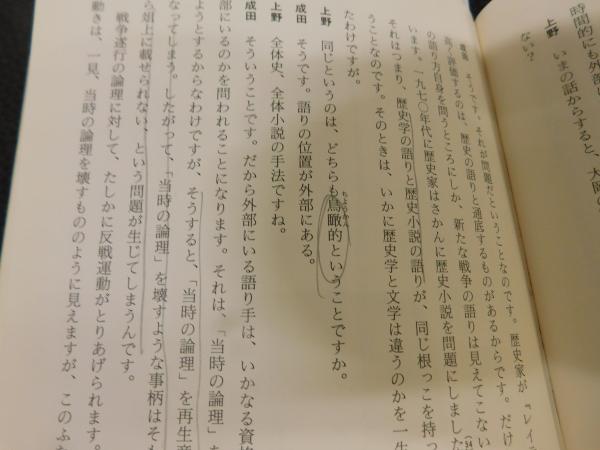 時間的にも外部に
上野　いまの話からすると、大岡の
ない？
成田　そうです。それが問題だということなのです。歴史家が『レイテ
高く評価するのは、歴史の語りと通底するものがあるからです。だけ
の語り方自身を問うところにしか、新たな戦争の語りは見えてこない
ます。一九七〇年代に歴史家はさかんに歴史小説を問題にしました
それはつまり、歴史学の語りと歴史小説の語りが、同じ根っこを持っ
うことなのです。そのときは、いかに歴史学と文学は違うのかを一生
たわけですが。
上野　同じというのは、どちらも鳥瞰的ということですか。
成田　そうです。語りの位置が外部にある。
上野　全体史、全体小説の手法ですね。
成田　そういうことです。だから外部にいる語り手は、いかなる資格
部にいるのかを問われることになります。それは、「当時の論理」を
ようとするからなわけですが、そうすると、「当時の論理」を再生産
なってしまう。したがって、「当時の論理」を壊すような事柄はそも
ら俎上に載せられない、という問題が生じてしまうんです。
戦争遂行の論理に対して、たしかに反戦運動がとりあげられます。
動きは、一見、当時の論理を壊すもののように見えますが、このふた